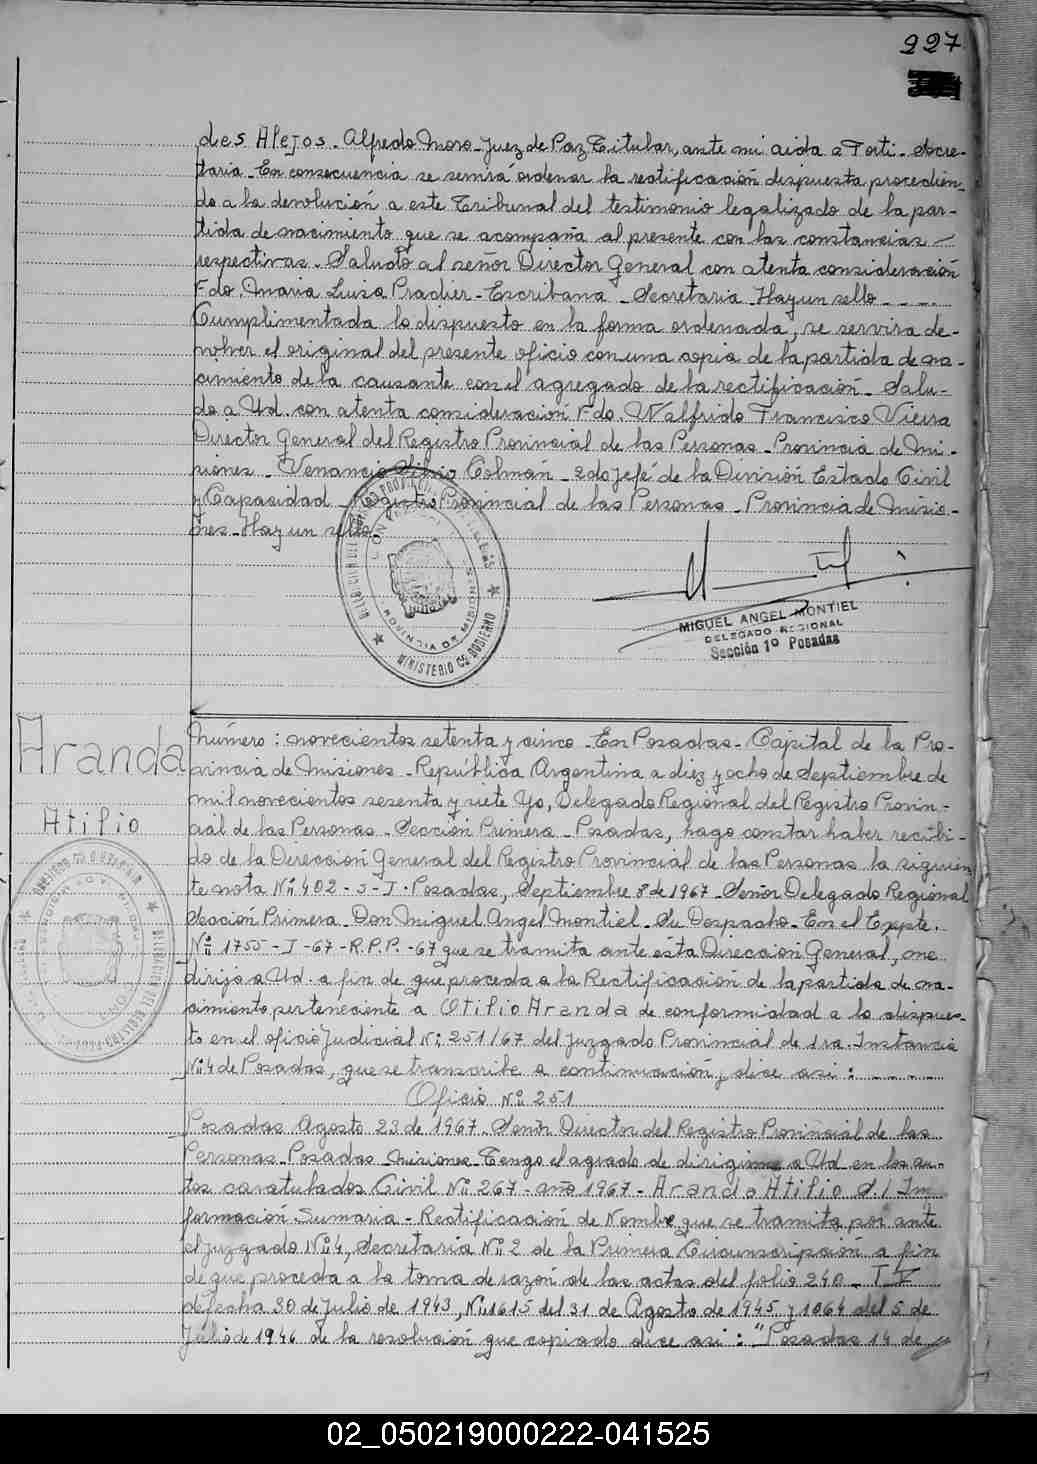 227
des Alejos. Alfredo Moro. Juez de Paz Titular, ante mi aida a Forti. Secre-
taria. En consecuencia se servirá ordenar la rectificación dispuesta procedien-
do a la devolución a este Tribunal del testimonio legalizado de la par-
tida de nacimiento que se acompaña al presente con las constancias
respectivas. Saludo al señor Director General con atenta consideración
Fdo. Maria Luisa Pradier - Escribana - Secretaria Hay un sello - - - -
Cumplimentada lo dispuesto en la forma ordenada, se servira de-
volver el original del presente oficio con una copia de la partida de na-
cimiento de la causante con el agregado de la rectificación. Salu-
do a Ud. con atenta consideración Fdo. Walfrido Francisco Viera
Director General del Registro Provincial de las Personas. Provincia de Mi-
siones. Venancio Silvio Colmán - 2do Jefe de la División Estado Civil
y Capacidad - Registro Provincial de las Personas - Provincia de Misio-
nes. Hay un sello.
MINISTERIO DE GOBIERNO
PROVINCIA DE MISIONES
MIGUEL ANGEL MONTIEL
DELEGADO REGIONAL
Sección 1º Posadas
Aranda
Atilio
Número: novecientos setenta y cinco - En Posadas - Capital de la Pro-
vincia de Misiones - República Argentina a diez y ocho de Septiembre de
mil novecientos sesenta y siete Yo, Delegado Regional del Registro Provin-
cial de las Personas - Sección Primera - Posadas, hago constar haber recibi-
do de la Dirección General del Registro Provincial de las Personas la siguien
te nota Nº 402 - J - I. Posadas, Septiembre 8 de 1967 - Señor Delegado Regional
Sección Primera - Don Miguel Angel Montiel - Su Despacho - En el Expte.
Nº 1755 - I - 67 - R.P.P. - 67 que se tramita ante esta Dirección General, me
dirijo a Ud. a fin de que proceda a la Rectificación de la partida de na-
cimiento perteneciente a Otilio Aranda de conformidad a lo dispues-
to en el oficio Judicial Nº 251/67 del Juzgado Provincial de 1ra. Instancia
Nº 4 de Posadas, que se transcribe a continuación, dice asi: - - - - -
Oficio Nº 251
Posadas Agosto 23 de 1967. Señor Director del Registro Provincial de las
Personas. Posadas Misiones. Tengo el agrado de dirigirme a Ud en los au-
tos caratulados Civil Nº 267 - año 1967 - Aranda Atilio S./ In
formación Sumaria - Rectificación de Nombre, que se tramita por ante
el Juzgado Nº 4, Secretaria Nº 2 de la Primera Circunscripción a fin
de que proceda a la toma de razón de las actas del folio 240 - T I
de fecha 30 de Julio de 1943, Nº 1615 del 31 de Agosto de 1945 y 1064 del 5 de
Julio de 1946 de la resolución que copiado dice asi: "Posadas 14 de
02_050219000222-041525